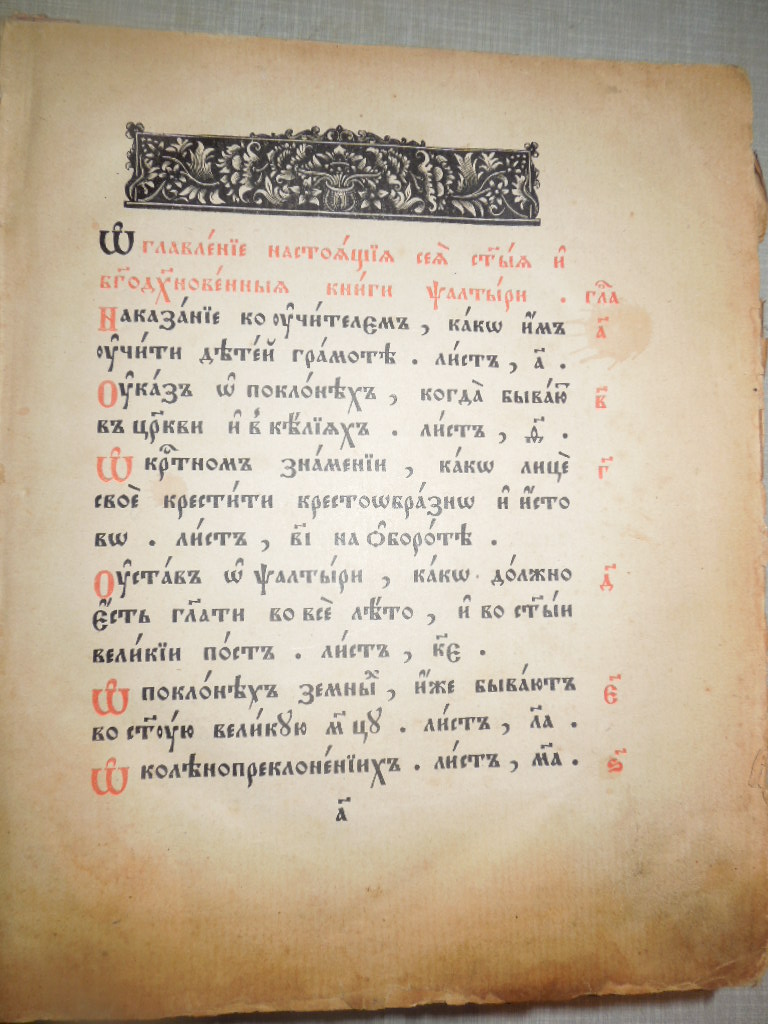 Ѡ҆главле́нїе настоѧ́щїѧ сеѧ̀ ст҃ы́ѧ и҆
бг҃одх҃нове́нныѧ кни́ги ѱалты́ри . гл҃а
Наказа́нїе ко ᲂу҆чи́телємъ , ка́кѡ и҆́мъ а҃
ᲂу҆чи́ти дѣте́й гра́мотѣ . ли́стъ , а҃ .
Оу҆ка́зъ ѡ҆ покло́нѣхъ , когда̀ быва́ю҃т в҃
въ цр҃кви и҆ в̾ кѣ́лїѧхъ . ли́стъ , ѳ҃ .
Ѡ҆ крⷭ҇тномъ зна́менїи , ка́кѡ лицѐ г҃
своѐ крести́ти крестоѡбра́знѡ и҆ и҆́сто
вѡ . ли́стъ , в҃і на ѻ҆боро́тѣ .
Оу҆ста́въ ѡ҆ ѱалты́ри , ка́кѡ до́лжно д҃
є҆́сть гл҃ати во всѐ лѣ́то , и҆ во ст҃ы́и
вели́кїи по́стъ . ли́стъ , к҃є .
Ѡ҆ покло́нѣхъ земны́хъ , и҆́же быва́ютъ є҃
во ст҃ꙋ́ю вели́кꙋю м҃цꙋ . ли́стъ , л҃а .
Ѡ҆ колѣнопреклоне́нїихъ . ли́стъ , м҃а . ѕ҃
а҃